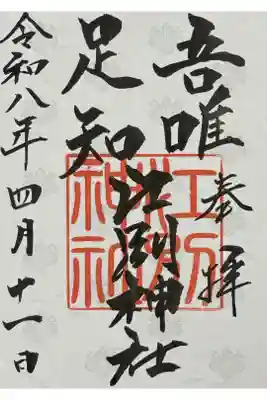 奉拝
吾唯
足知
江別神社
江別
神社
令和八年四月十一日